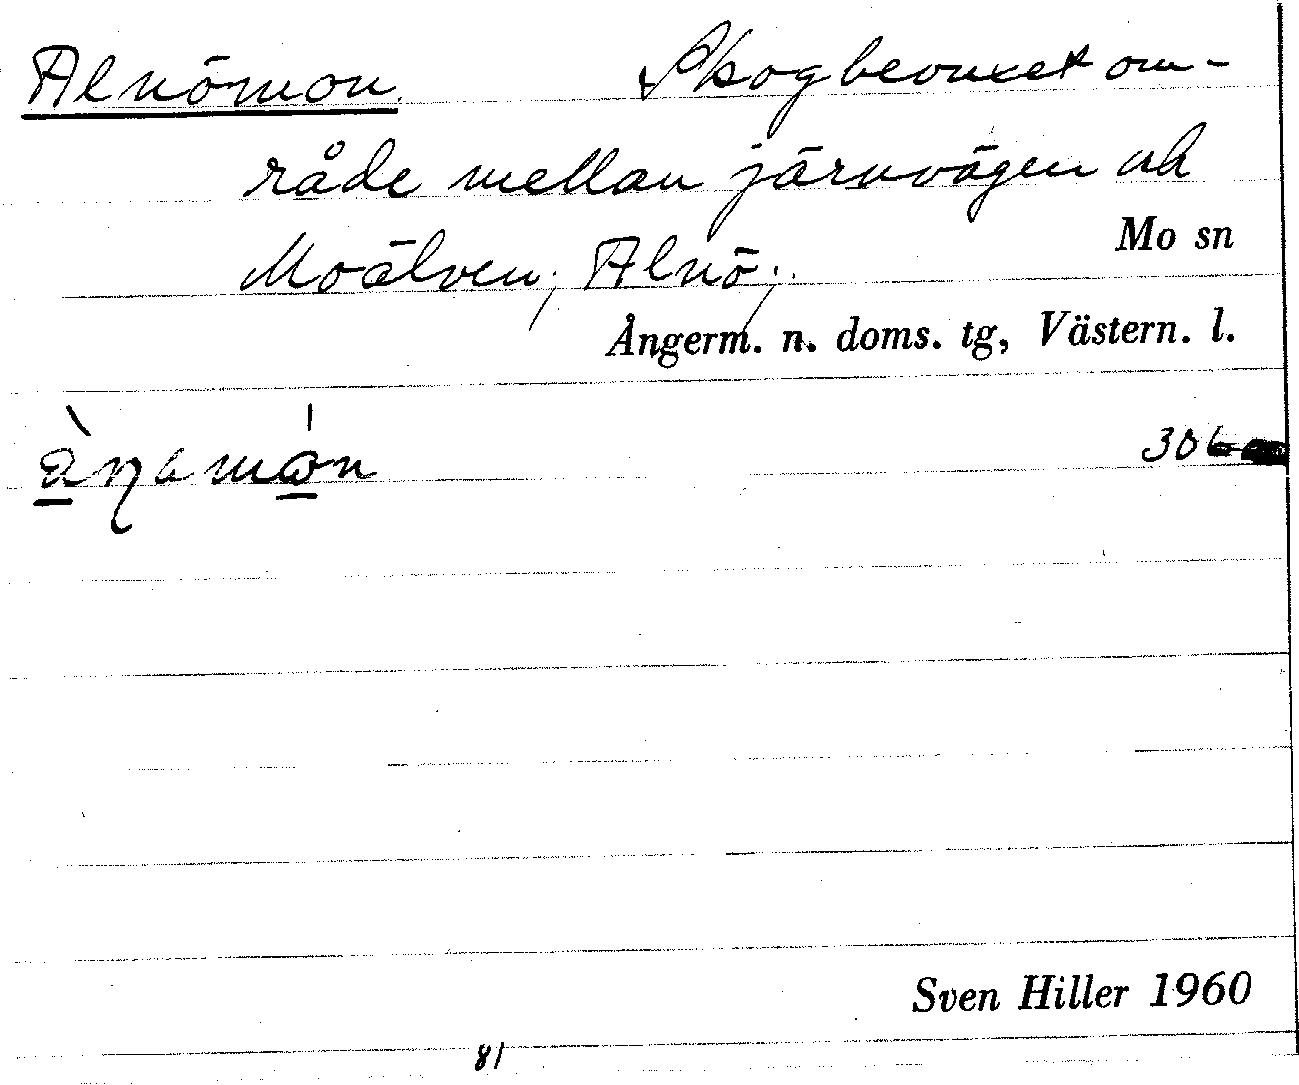 Alnömon. Skogbevuxet om-
råde mellan järnvägen och
Mo sn
Moälven; Alnö;
Ångerm. n. doms. tg, Västern. l.
306
Sven Hiller 1960
81